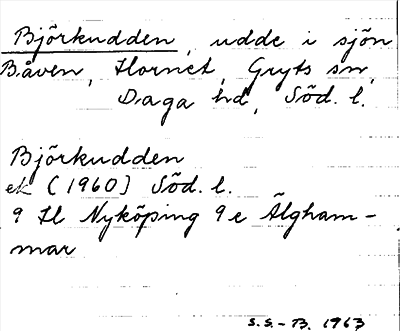 Björkudden, udde i sjön
Båven, Hornet, Gryts sn,
Daga hd, Söd. l.
Björkudden
ek (1960) Söd. l.
9 H Nyköping 9 e Älgham-
mar
S.S.-B. 1963